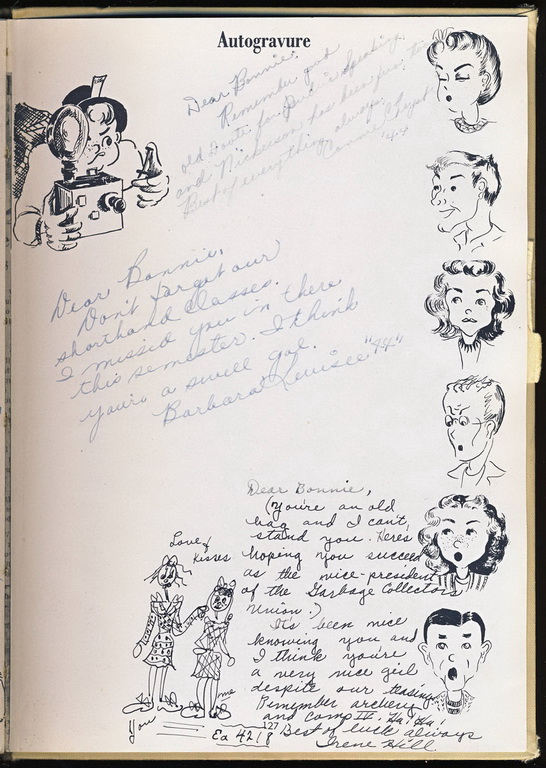 Autogravure
Dear Bonnie,
Remember good
old Dante for Jack is speaking,
and Nickerson has been fun, too
Best of everything always.
Connie
'44
Dear Bonnie,
Don't forget our
shorthand classes.
I missed you in there
this semester. I think
you're a swell gal.
Barbara "44"
Dear Bonnie,
(You're an old
bag and I can't
stand you. Here's
hoping you succeed
as the vice-president
of the Garbage Collectors
Union.)
It's been nice
knowing you and
I think you're
a very nice girl
despite our teasing.
Remember archery
and Comp IV. Ha! Ha!
Best of luck always
Irene Hill
Love &
Kisses
You
me
127
Ea 4218